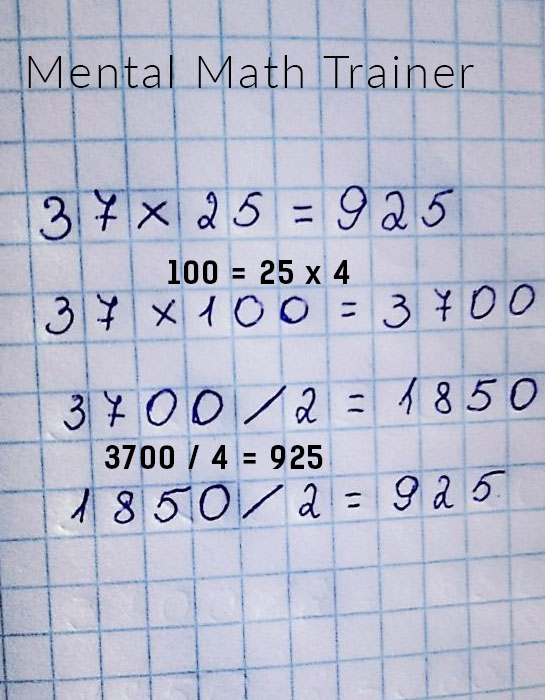 Mental Math Trainer
37 × 25 = 925
100 = 25 x 4
37 × 100 = 3700
3700 / 2 = 1850
3700 / 4 = 925
1850 / 2 = 925